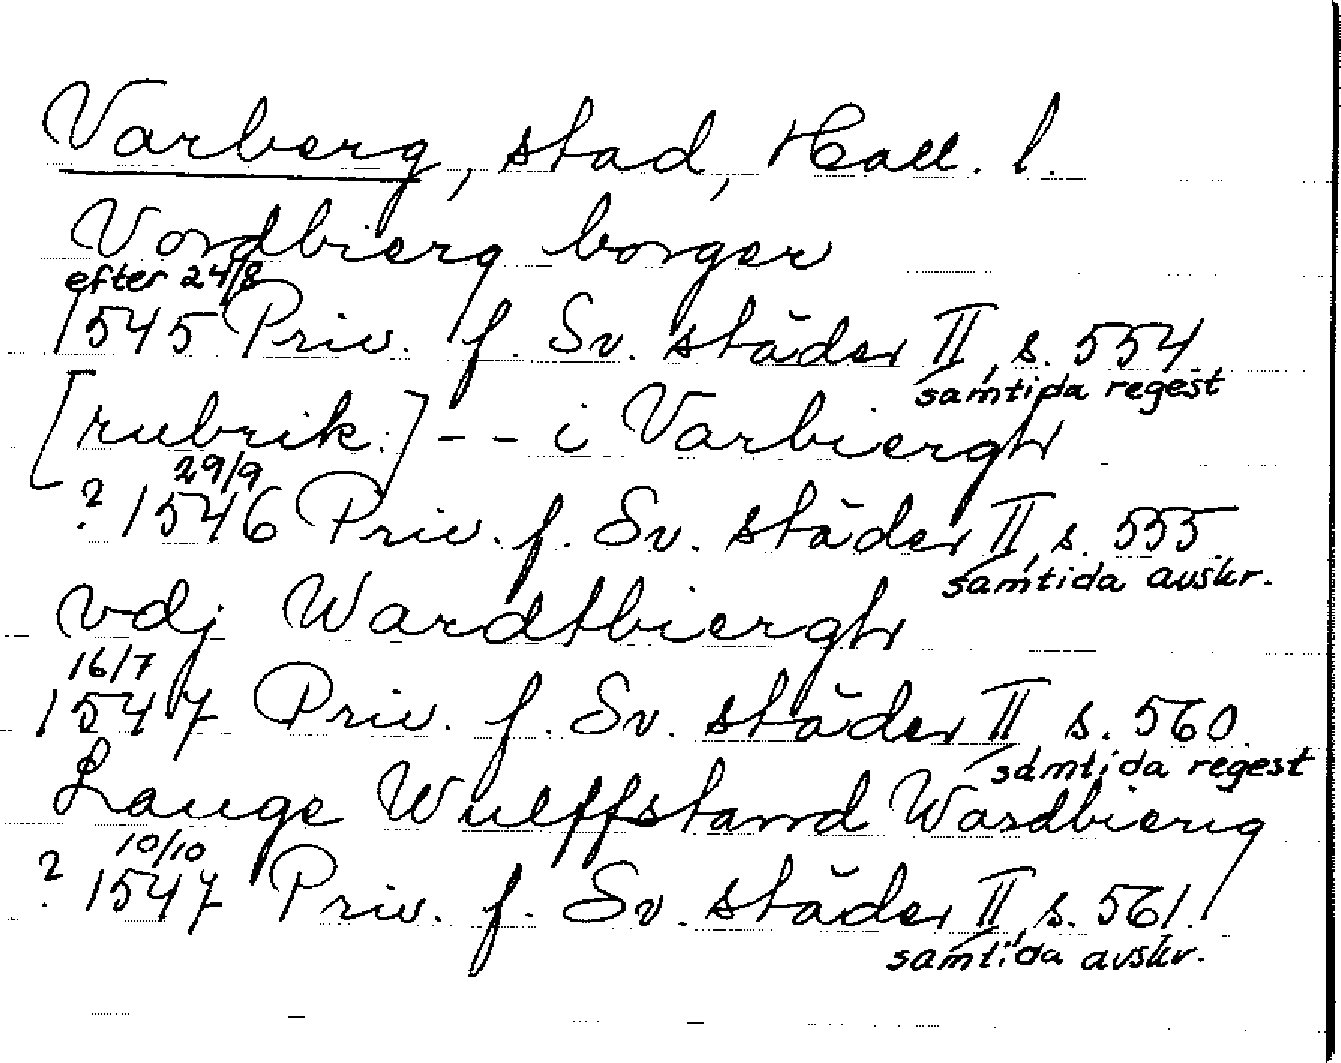 Varberg, stad, Hall. l.
Vordbierg borger
efter 24/8
1545 Priv. f. Sv. städer II, s. 554
samtida regest
[rubrik:] -- i Varbiergh
29/9
? 1546 Priv. f. Sv. städer II, s. 555
samtida avskr.
vdj Wardtbiergh
16/7
1547 Priv. f. Sv. städer II s. 560
samtida regest
Lauge Wulffstannd Wardbierig
10/10
? 1547 Priv. f. Sv. städer II, s. 561
samtida avskr.